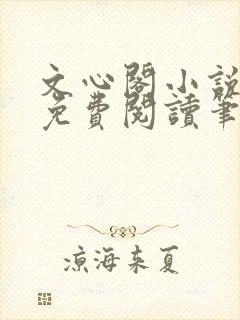 文心閣小說
免費閱讀筆
涼海來夏